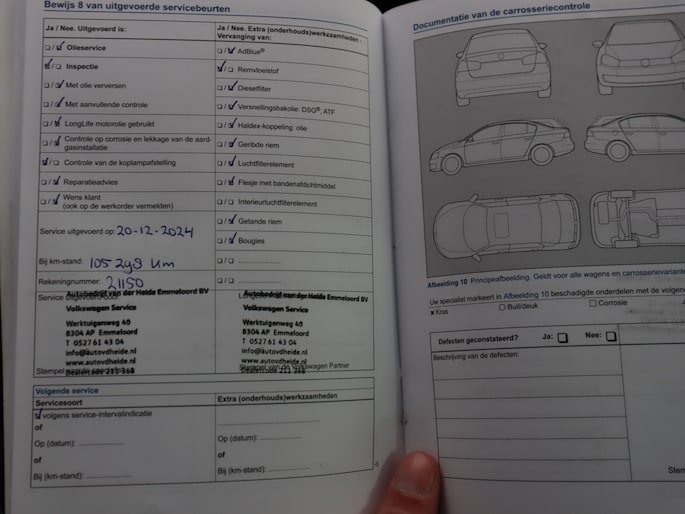 Bewijs 8 van uitgevoerde servicebeurten
Ja / Nee. Uitgevoerd is:
Olieservice
Inspectie
Met olie verversen
Met aanvullende controle
LongLife motorolie gebruikt
Controle op corrosie en lekkage van de aard-
gasinstallatie
Controle van de koplampafstelling
Reparatieadvies
Wens klant
(ook op de werkorder vermelden)
Service uitgevoerd op: 20-12-2024
Bij km-stand: 105 298 km
Rekeningnummer: 21150
Service uitgevoerd door:
Autobedrijf van der Heide Emmeloord BV
Volkswagen Service
Werktuigenweg 40
8304 AP Emmeloord
T 0527 61 43 04
info@autovdheide.nl
www.autovdheide.nl
Dealercode 211 368
Ja / Nee. Extra (onderhouds)werkzaamheden -
Vervanging van:
AdBlue®
Remvloeistof
Dieselfilter
Versnellingsbakolie: DSG®, ATF
Haldex-koppeling: olie
Geribde riem
Luchtfilterelement
Flesje met bandenafdichtmiddel
Interieurluchtfilterelement
Getande riem
Bougies
Autobedrijf van der Heide Emmeloord BV
Volkswagen Service
Werktuigenweg 40
8304 AP Emmeloord
T 0527 61 43 04
info@autovdheide.nl
www.autovdheide.nl
Dealercode 211 368
Volgende service
Servicesoort
volgens service-intervalindicatie
of
Op (datum):
of
Bij (km-stand):
Extra (onderhouds)werkzaamheden
Op (datum):
of
Bij (km-stand):
Documentatie van de carrosseriecontrole
Afbeelding 10 Principeafbeelding. Geldt voor alle wagens en carrosserievariante
Uw specialist markeert in Afbeelding 10 beschadigde onderdelen met de volgen
x Kras
Buil/deuk
Corrosie
Defecten geconstateerd? Ja: Nee:
Beschrijving van de defecten:
Stem